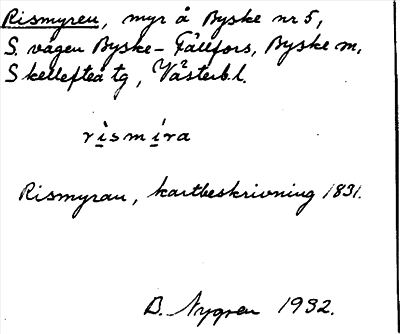 Rismyren, myr å Byske nr 5,
S. vägen Byske - Fällfors, Byske m,
Skellefteå tg, Västerb. l.
rismira
Rismyran, kartbeskrivning 1831.
B. Nygren 1932.